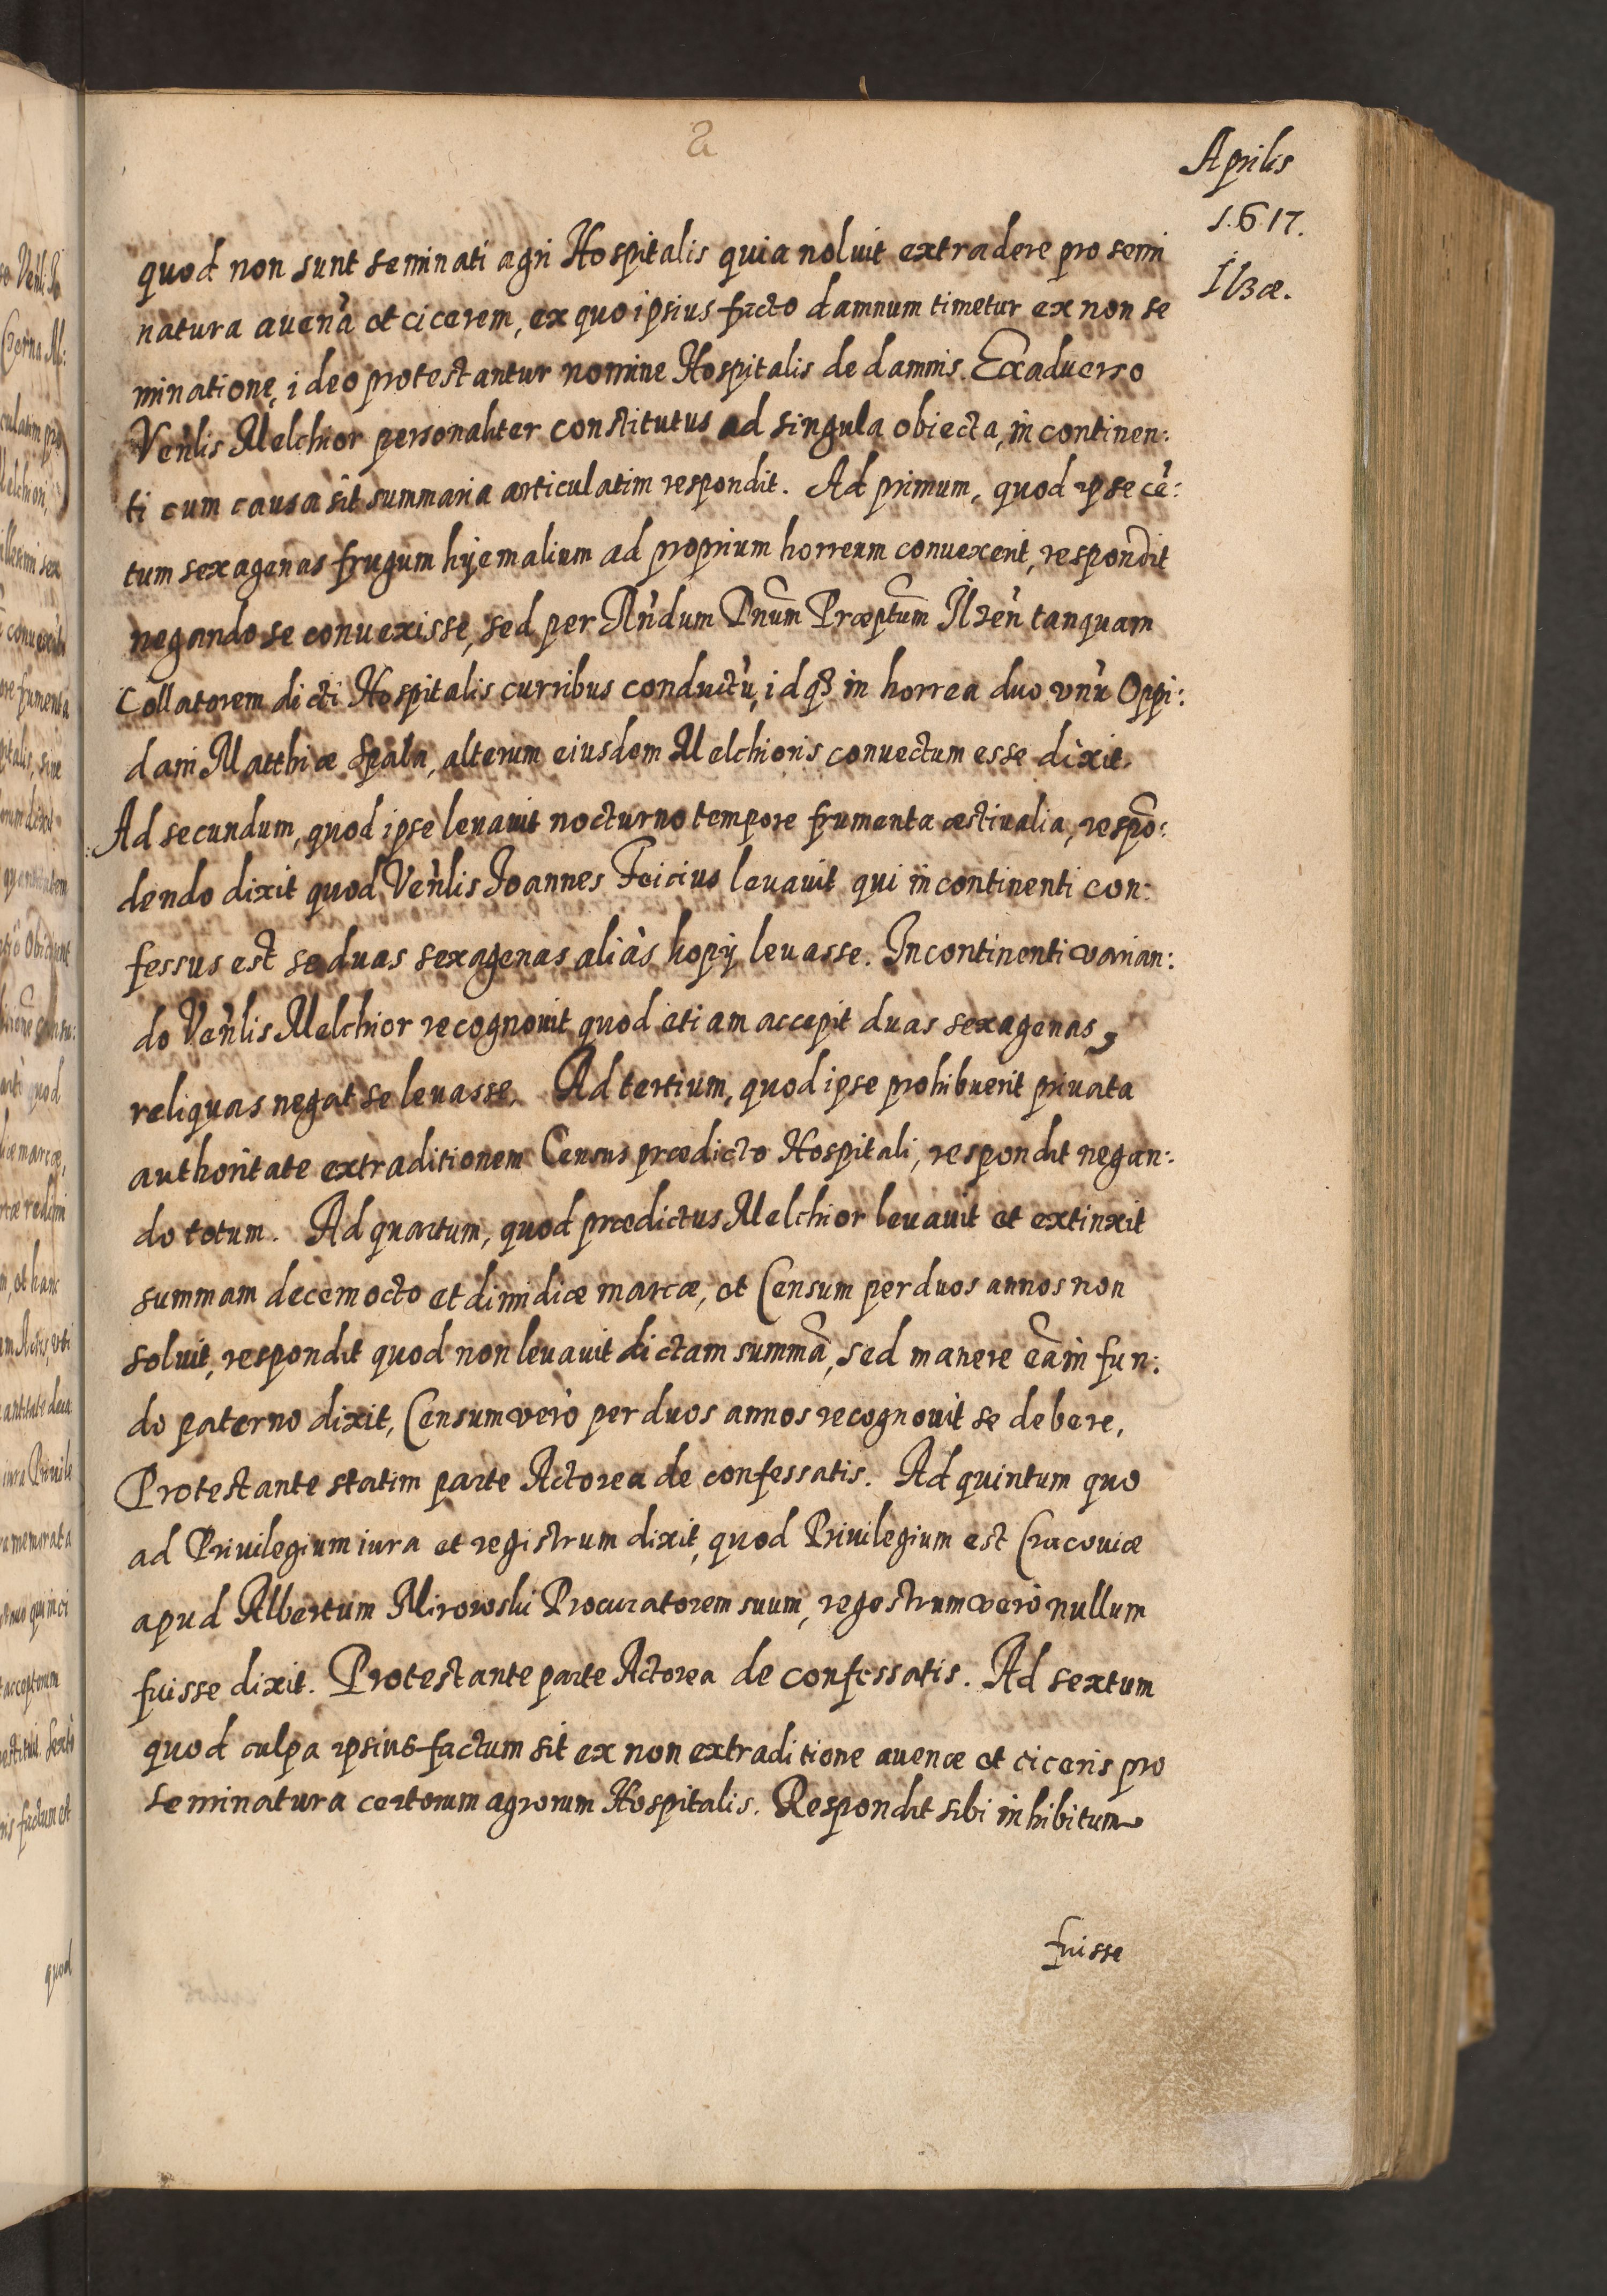 2
Aprilis
1.6.17.
Ilzæ.
quod non sunt seminati agri Hospitalis quia noluit extradere pro semi
natura auenà et cicerem, ex quo ipsius facto damnum timetur ex non se
minatione, ideo protestantur nomine Hospitalis de damnis. Exaduerso
Ven̄lis Melchior personaliter constitutus ad singula obiecta, in continen:
ti cum causa sit summaria articulatim respondit. Ad primum, quod ipse cē:
tum sexagenas frugum hyemalium ad proprium horreum conuexerit, respondit
negando se conuexisse, sed per Rn̄dum Dn̄um Præptum Ilzen̄ tanquam
Collatorem dicti Hospitalis curribus conductū, idq3 in horrea duo vnū Oppi:
dani Matthiæ Spala, alterum eiusdem Melchioris conuectum esse dixit.
Ad secundum, quod ipse leuauit nocturno tempore frumenta æstiualia, respō:
dendo dixit quod Ven̄lis Joannes Feicius leuauit qui incontinenti con:
fessus est se duas sexagenas aliàs kopÿ leuasse. Incontinenti varian:
do Ven̄lis Melchior recognouit quod etiam accepit duas sexagenas,
reliquas negat se leuasse. Ad tertium, quod ipse prohibuerit priuata
authoritate extraditionem Census prædicto Hospitali, respondit negan:
do totum. Ad quartum, quod prædictus Melchior leuauit et extinxit
summam decem octo et dimidiæ marcæ, et Censum per duos annos non
soluit, respondit quod non leuauit dictam summā, sed manere eā in fun:
do paterno dixit, Censum verò per duos annos recognouit se debere,
Protestante statim parte Actorea de confessatis. Ad quintum quo
ad Priuilegium iura et registrum dixit, quod Priuilegium est Cracouiæ
apud Albertum Mirowski Procuratorem suum, regestrum verò nullum
fuisse dixit. Protestante parte Actorea de confessatis. Ad sextum
quod culpa ipsius factum sit ex non extraditione auenæ et ciceris pro
seminatura certorum agrorum Hospitalis. Respondit sibi inhibitum
fuisse